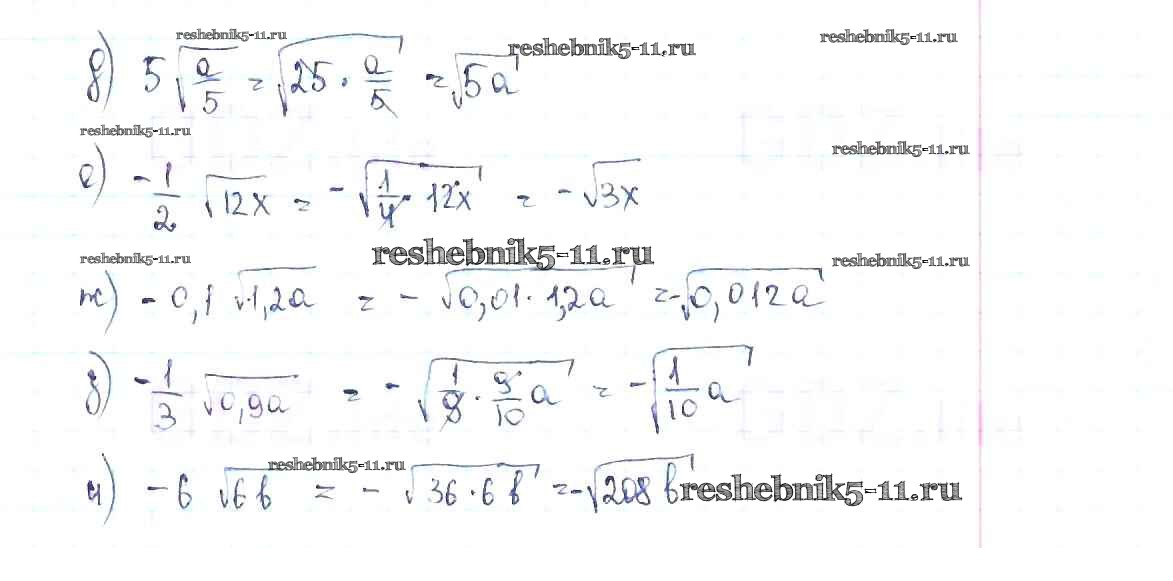 reshebnik5-11.ru reshebnik5-11.ru reshebnik5-11.ru
д) 5 √(a/5) = √(25 · a/5) = √5a
reshebnik5-11.ru reshebnik5-11.ru
е) -1/2 √12x = -√(1/4 · 12x) = -√3x
reshebnik5-11.ru
reshebnik5-11.ru reshebnik5-11.ru
ж) -0,1 √1,2a = -√0,01 · 1,2a = -√0,012a
з) -1/3 √0,9a = -√(1/9 · 9/10 a) = -√(1/10 a)
reshebnik5-11.ru
и) -6 √6b = -√36 · 6b = -√208b reshebnik5-11.ru